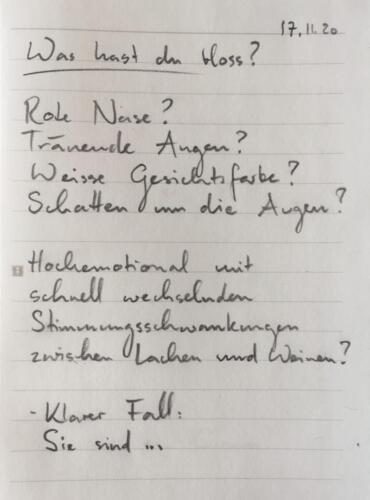 17.11.20
Was hast du bloss?
Rote Nase?
Tränende Augen?
Weisse Gesichtsfarbe?
Schatten um die Augen?
Hochemotional mit
schnell wechselnden
Stimmungsschwankungen
zwischen Lachen und Weinen?
- Klarer Fall:
Sie sind ...